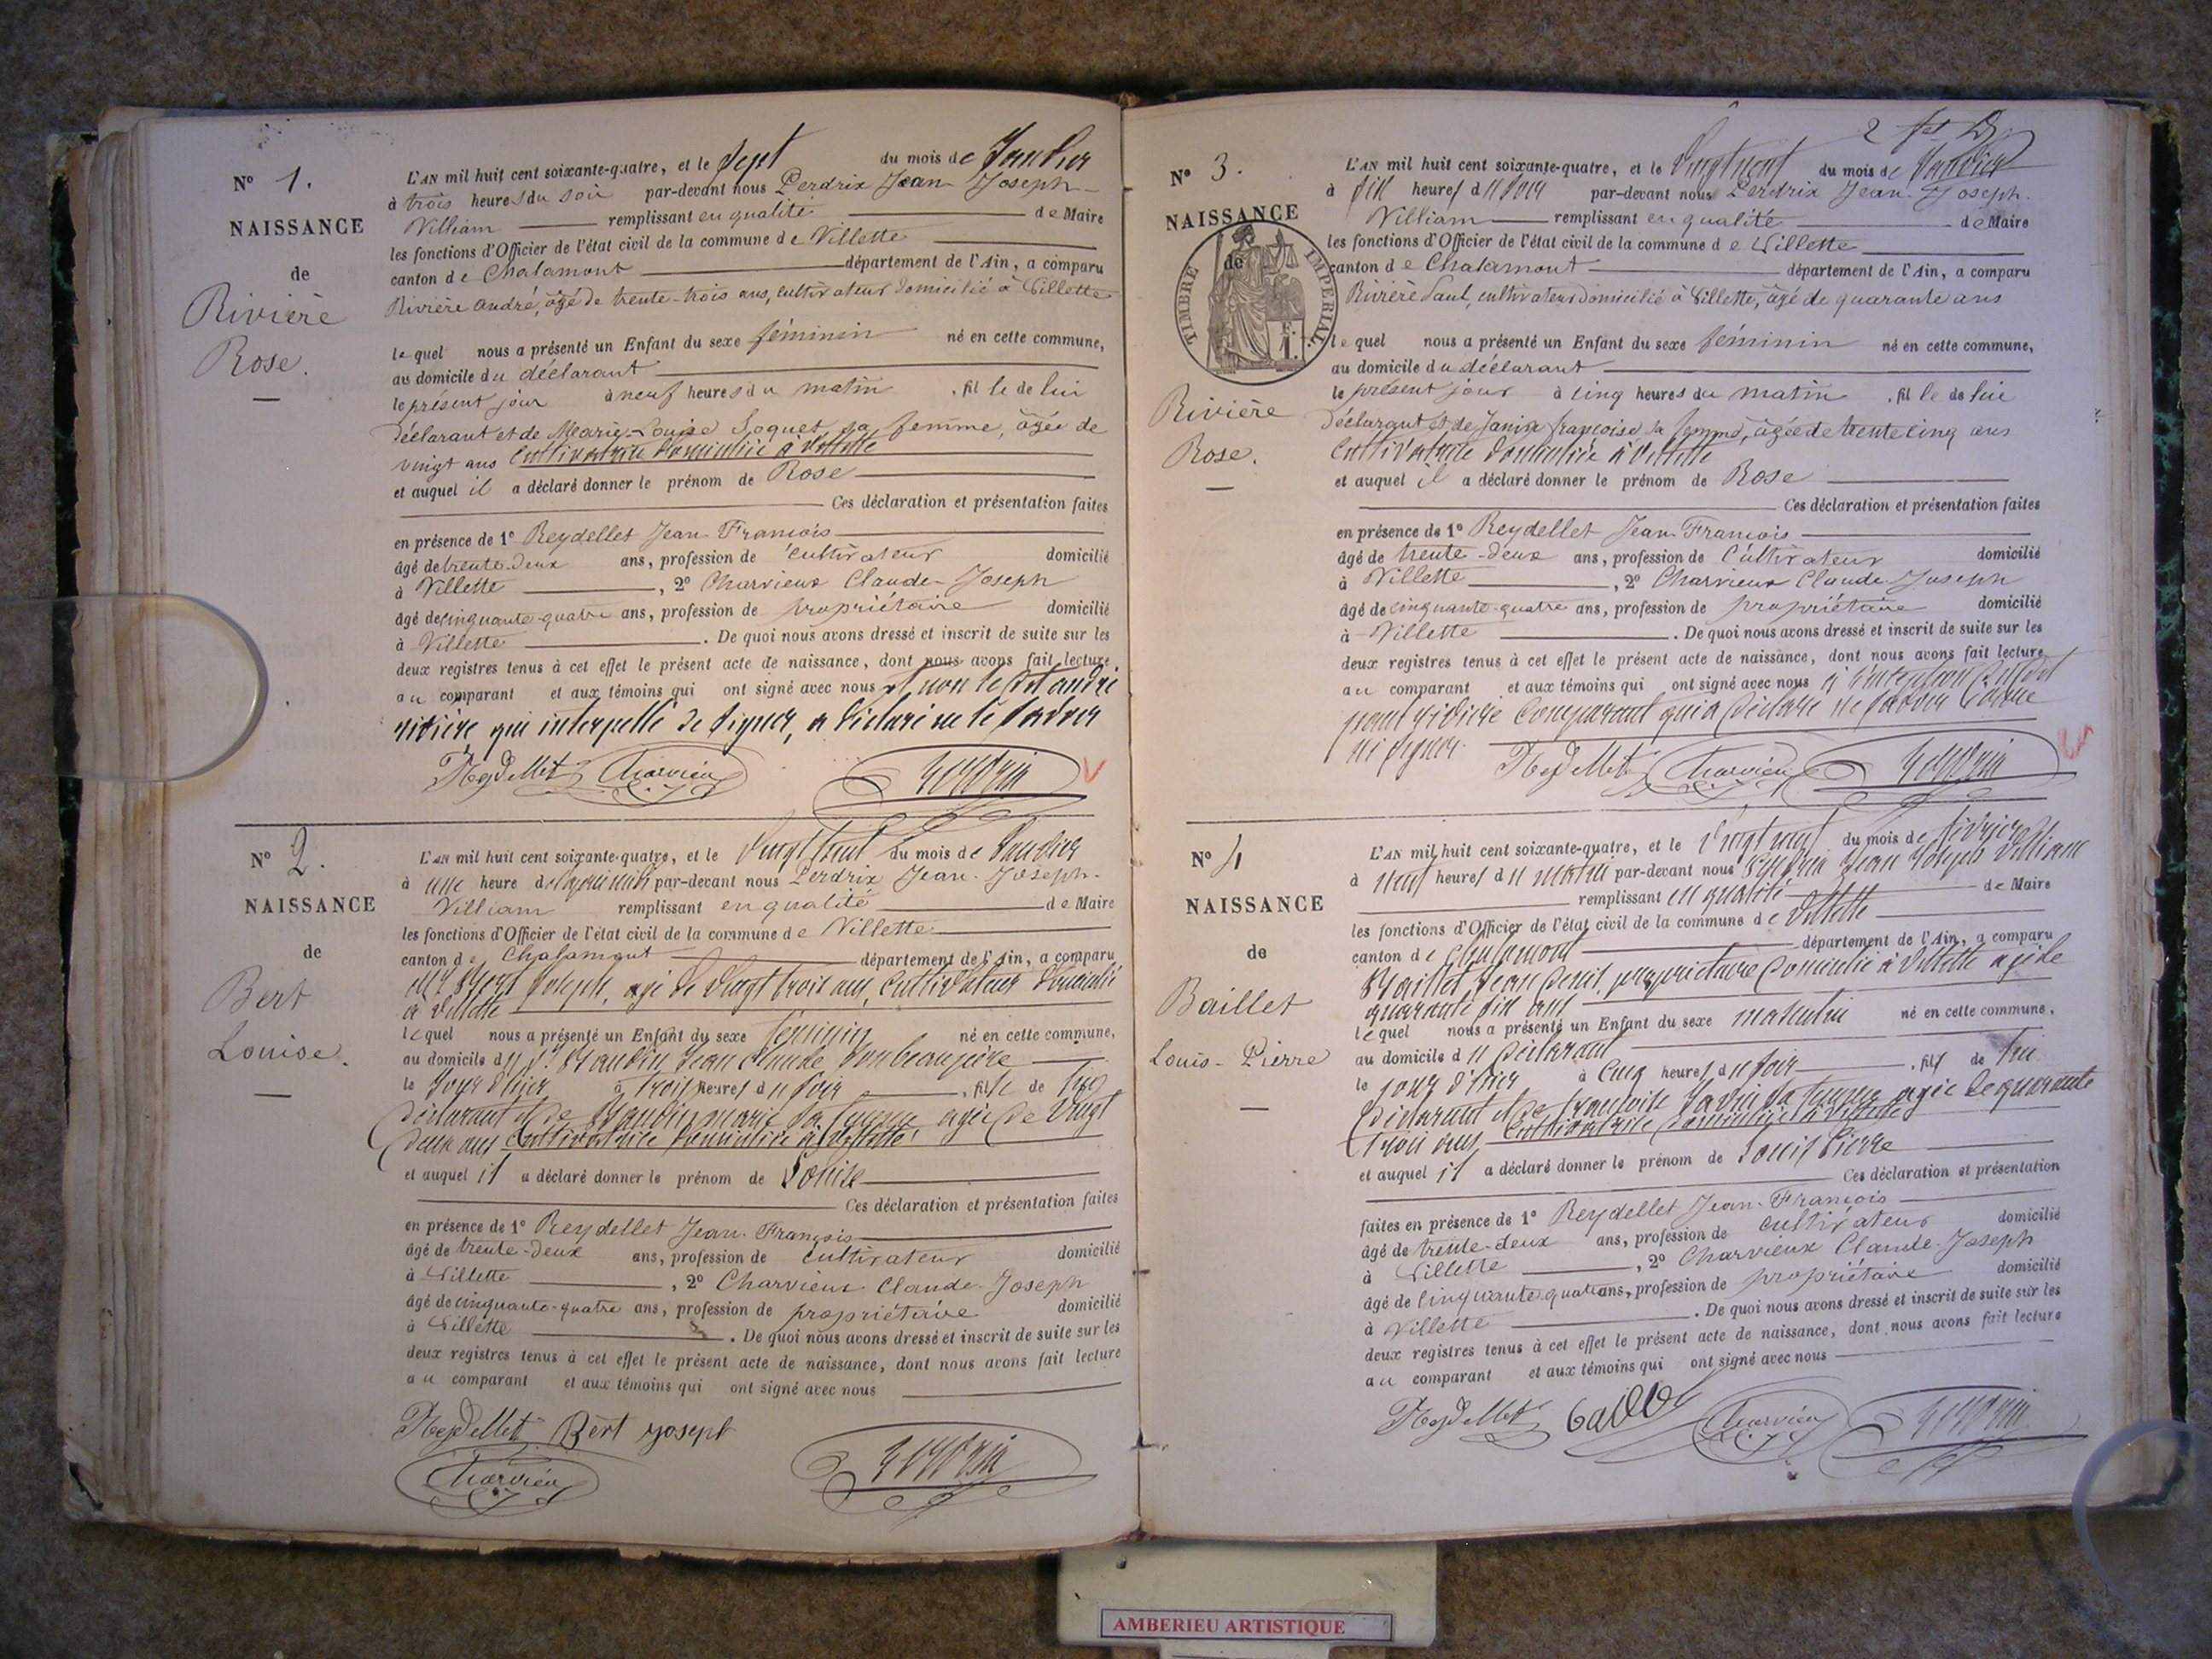 N° 1.
NAISSANCE
de
Rivière
Rose.
L'AN mil huit cent soixante-quatre, et le sept du mois de Janvier
à trois heures du soir par-devant nous Perdrix Jean-Joseph-
William remplissant en qualité de Maire
les fonctions d'Officier de l'état civil de la commune de Villette
canton de Chalamont département de l'Ain, a comparu
Rivière André, âgé de trente-trois ans, cultivateur domicilié à Villette
lequel nous a présenté un Enfant du sexe féminin né en cette commune,
au domicile du déclarant
le présent jour à neuf heures du matin, fille de lui
déclarant et de Marie-Louise Soquet sa femme, âgée de
vingt ans cultivatrice domiciliée à Villette
et auquel il a déclaré donner le prénom de Rose
Ces déclaration et présentation faites
en présence de 1° Reydellet Jean-François
âgé de trente-deux ans, profession de cultivateur domicilié
à Villette, 2° Charvieux Claude-Joseph
âgé de cinquante-quatre ans, profession de propriétaire domicilié
à Villette. De quoi nous avons dressé et inscrit de suite sur les
deux registres tenus à cet effet le présent acte de naissance, dont nous avons fait lecture
au comparant et aux témoins qui ont signé avec nous et non le dit andré
rivière qui interpellé de signer, a déclaré ne le savoir
Reydellet Charvieu
N° 2.
NAISSANCE
de
Bert
Louise.
L'AN mil huit cent soixante-quatre, et le vingt huit du mois de Janvier
à une heure de par-devant nous Perdrix Jean-Joseph-
William remplissant en qualité de Maire
les fonctions d'Officier de l'état civil de la commune de Villette
canton de Chalamont département de l'Ain, a comparu
Bert Joseph, agé de vingt trois ans, cultivateur domicilié
à Villette
lequel nous a présenté un Enfant du sexe féminin né en cette commune,
au domicile du Jean Claude, son beaupère
le jour d'hier à trois heures du soir, fille de lui
déclarant et de marie sa femme agée de vingt
deux ans cultivatrice domiciliée à Villette
et auquel il a déclaré donner le prénom de Louise
Ces déclaration et présentation faites
en présence de 1° Reydellet Jean-François
âgé de trente-deux ans, profession de cultivateur domicilié
à Villette, 2° Charvieux Claude-Joseph
âgé de cinquante-quatre ans, profession de propriétaire domicilié
à Villette. De quoi nous avons dressé et inscrit de suite sur les
deux registres tenus à cet effet le présent acte de naissance, dont nous avons fait lecture
au comparant et aux témoins qui ont signé avec nous
Reydellet Bert Joseph
Charvieu
N° 3.
NAISSANCE
de
TIMBRE IMPERIAL
Rivière
Rose.
L'AN mil huit cent soixante-quatre, et le vingt neuf du mois de Janvier
à six heures du soir par-devant nous Perdrix Jean-Joseph-
William remplissant en qualité de Maire
les fonctions d'Officier de l'état civil de la commune de Villette
canton de Chalamont département de l'Ain, a comparu
Rivière Paul, cultivateur domicilié à Villette, âgé de quarante ans
lequel nous a présenté un Enfant du sexe féminin né en cette commune,
au domicile du déclarant
le présent jour à cinq heures du matin, fille de lui
déclarant et de françoise sa femme, âgée de trente cinq ans
cultivatrice domiciliée à Villette
et auquel il a déclaré donner le prénom de Rose
Ces déclaration et présentation faites
en présence de 1° Reydellet Jean-François
âgé de trente-deux ans, profession de cultivateur domicilié
à Villette, 2° Charvieux Claude-Joseph
âgé de cinquante-quatre ans, profession de propriétaire domicilié
à Villette. De quoi nous avons dressé et inscrit de suite sur les
deux registres tenus à cet effet le présent acte de naissance, dont nous avons fait lecture
au comparant et aux témoins qui ont signé avec nous
paul rivière comparant qui a déclaré ne savoir
ni signer.
Reydellet Charvieu
N° 4
NAISSANCE
de
Baillet
Louis-Pierre
L'AN mil huit cent soixante-quatre, et le vingt neuf du mois de février
à neuf heures du matin par-devant nous Perdrix Jean Joseph William
remplissant en qualité de Maire
les fonctions d'Officier de l'état civil de la commune de Villette
canton de Chalamont département de l'Ain, a comparu
Baillet, Jean Denis, propriétaire domicilié à Villette agé de
quarante six ans
lequel nous a présenté un Enfant du sexe masculin né en cette commune,
au domicile du déclarant
le jour d'hier à cinq heures du soir, fils de lui
déclarant et de françoise sa femme agée de quarante
trois ans cultivatrice domiciliée à Villette
et auquel il a déclaré donner le prénom de Louis Pierre
Ces déclaration et présentation
faites en présence de 1° Reydellet Jean-François
âgé de trente-deux ans, profession de cultivateur domicilié
à Villette, 2° Charvieux Claude-Joseph
âgé de cinquante-quatre ans, profession de propriétaire domicilié
à Villette. De quoi nous avons dressé et inscrit de suite sur les
deux registres tenus à cet effet le présent acte de naissance, dont nous avons fait lecture
au comparant et aux témoins qui ont signé avec nous
Reydellet Charvieu
AMBERIEU ARTISTIQUE